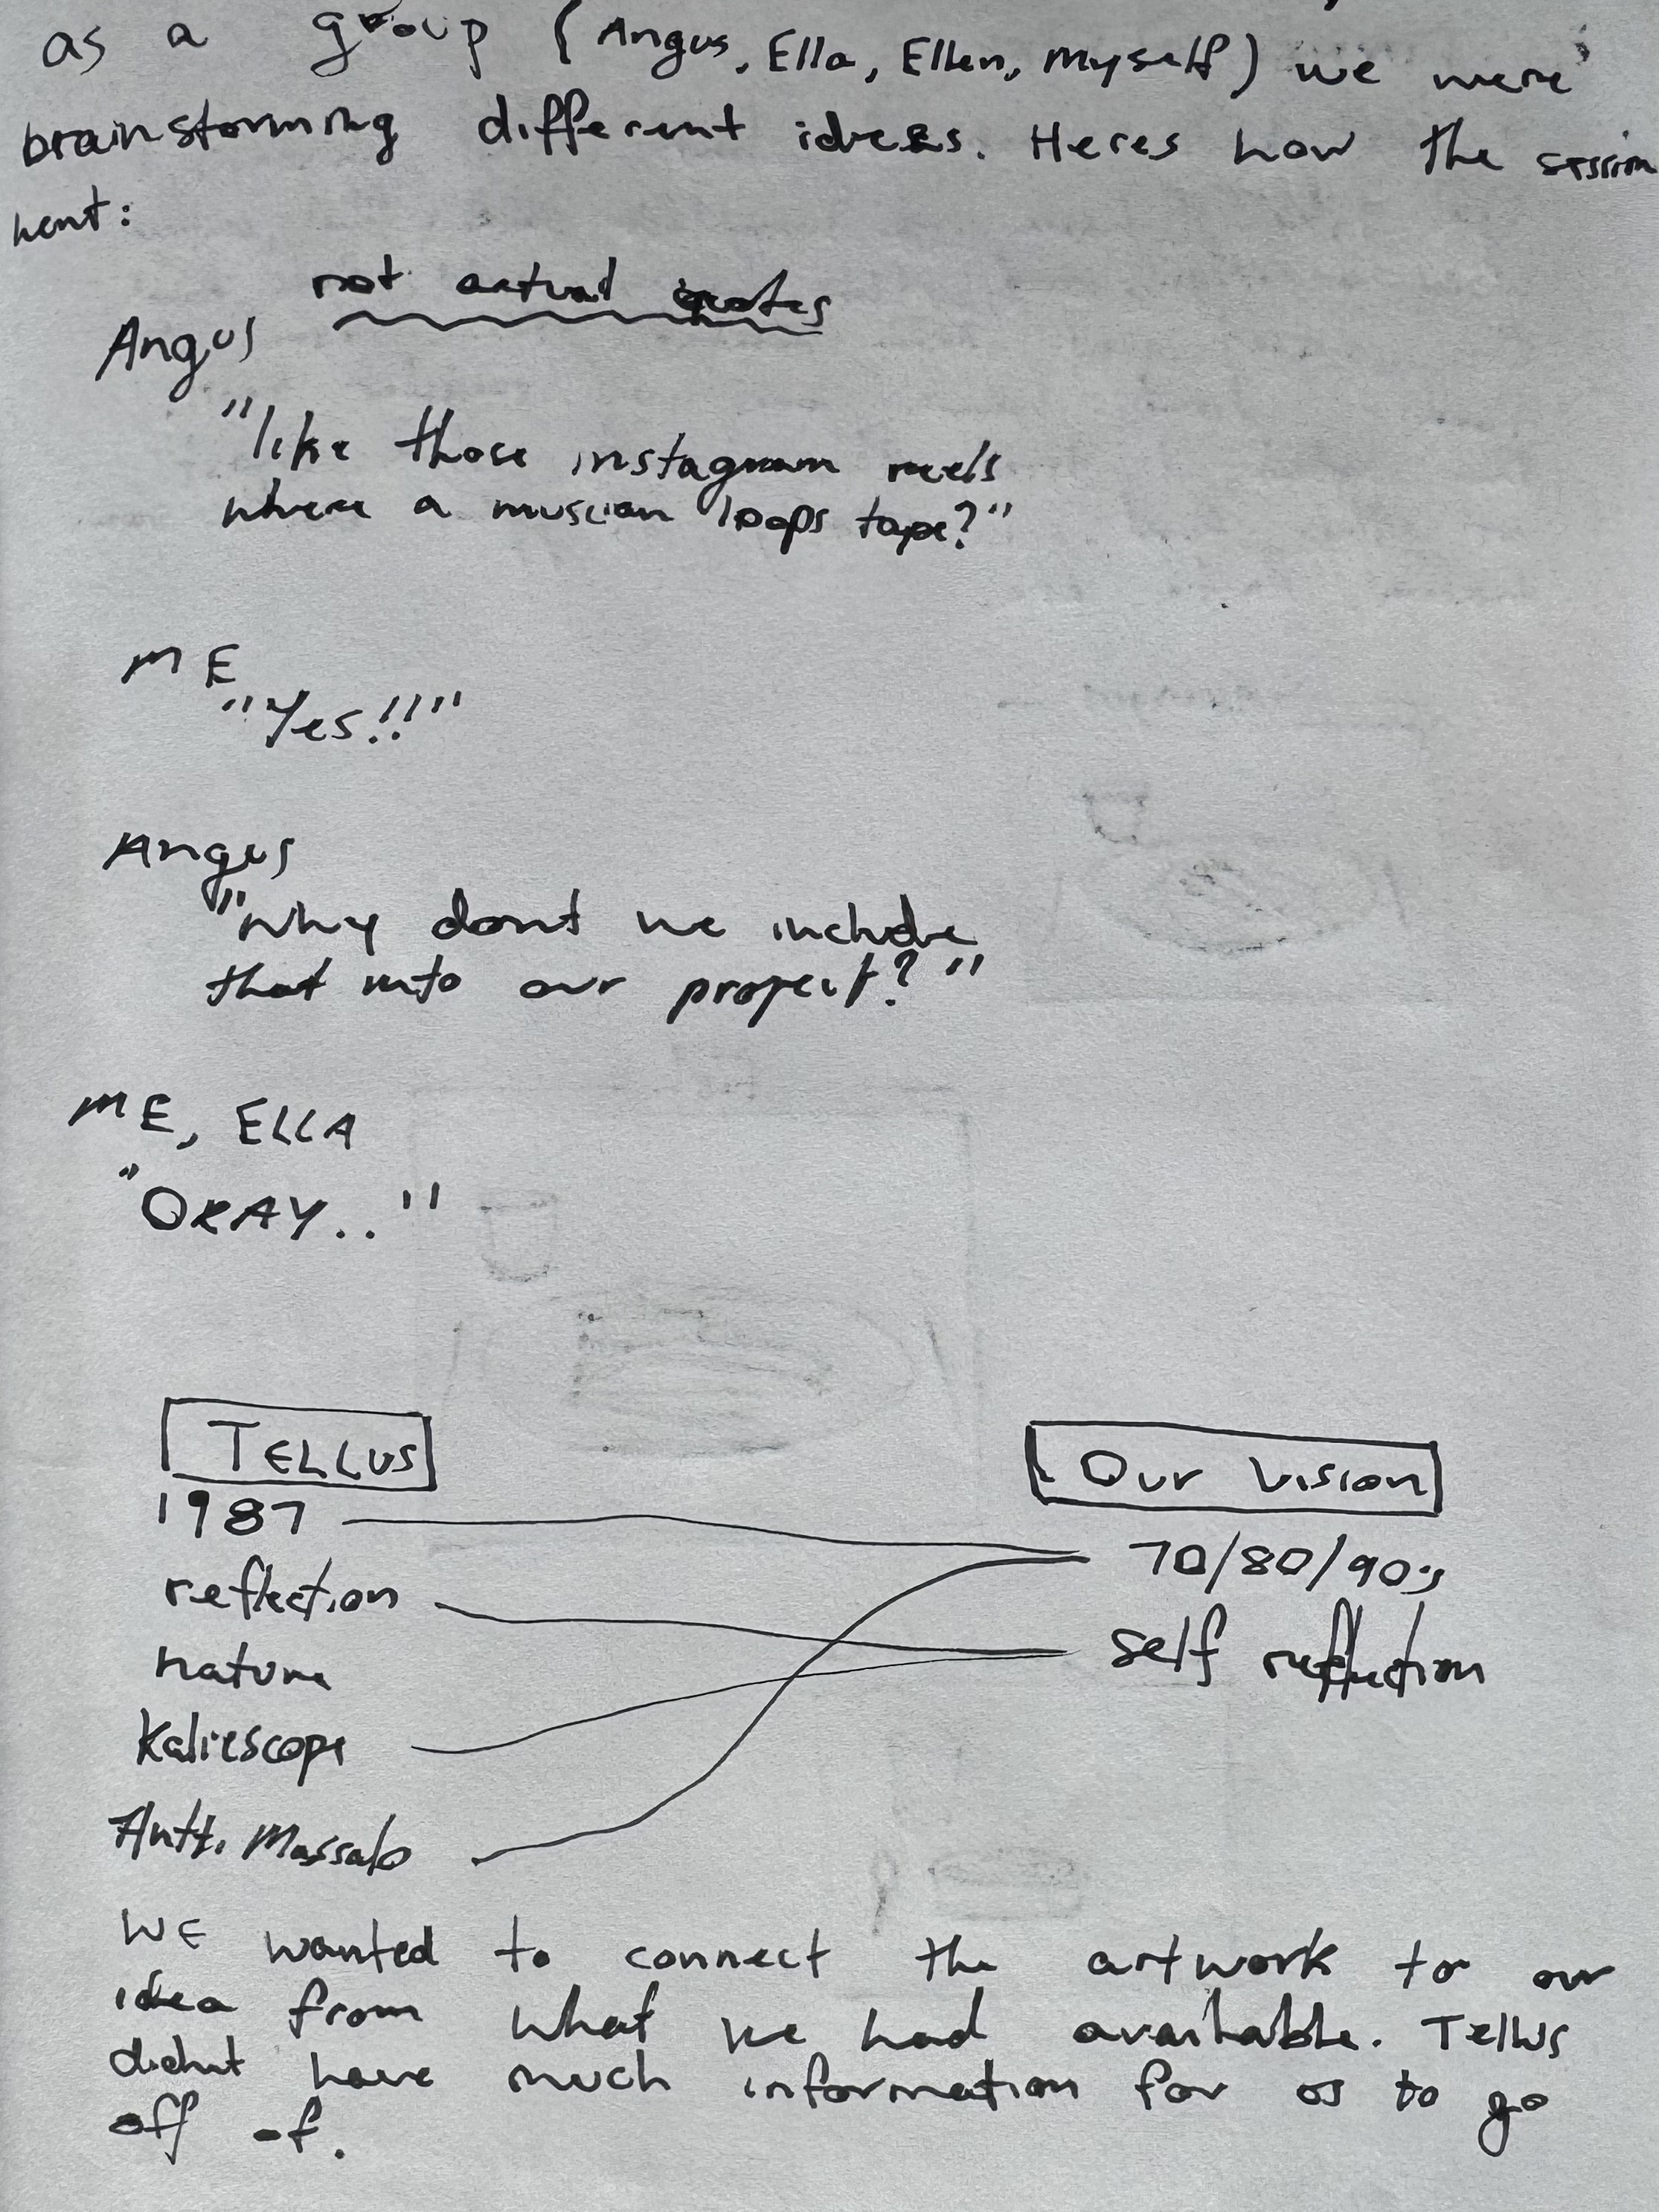 as a group (Angus, Ella, Ellen, Myself) we were
brainstorming different ideas. Heres how the session
went:
not actual quotes
Angus
"like those instagram reels
where a muscian loops tape?"
ME
"Yes!!"
Angus
"why dont we include
that into our project?"
ME, ELLA
"OKAY.."
TELLUS
1987
reflection
nature
Kaliescope
Antti Massalo
Our Vision
70/80/90's
self reflection
WE wanted to connect the artwork to our
idea from what we had available. Tellus
didnt have much information for us to go
off of.